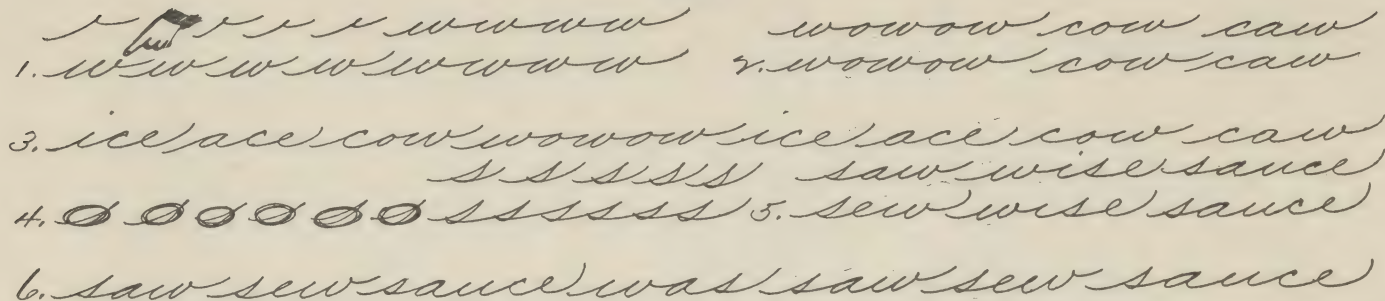 w w w w wowow cow caw
1. w w w w w w w w 2. wowow cow caw
3. ice ace cow wowow ice ace cow caw
s s s s s saw wise sauce
4. s s s s s s 5. sew wise sauce
6. saw sew sauce was saw sew sauce